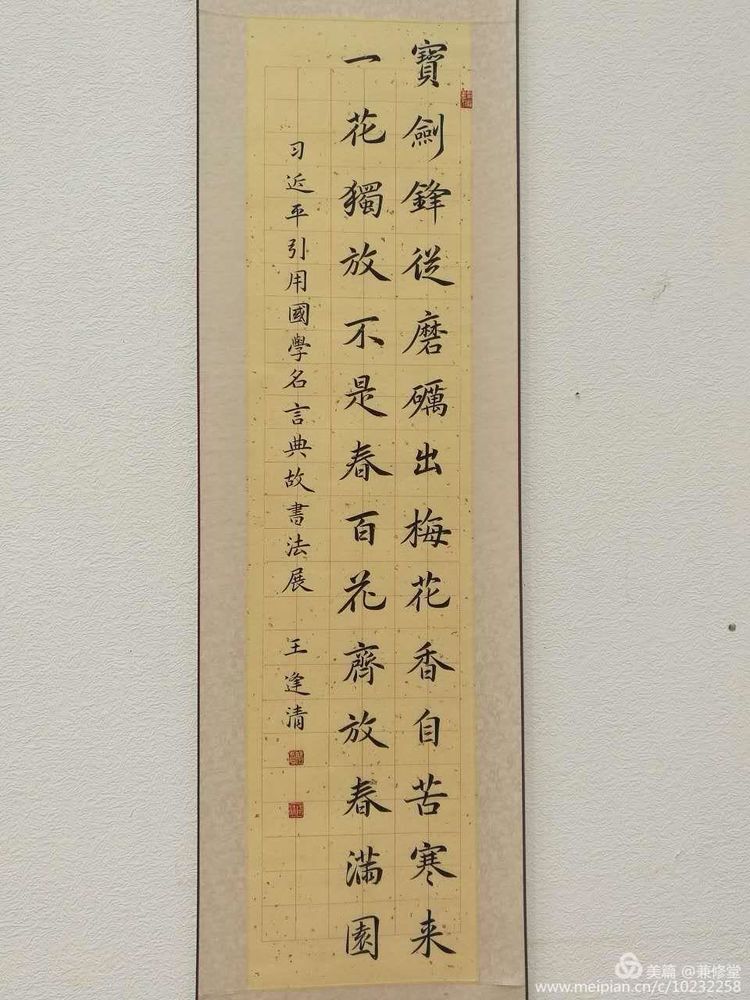 寶劍鋒從磨礪出梅花香自苦寒来
一花獨放不是春百花齊放春滿園
习近平引用國學名言典故書法展 王逢清
美篇 @兼修堂
www.meipian.cn/c/10232258